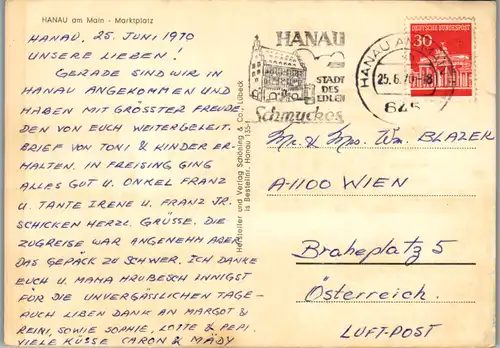 HANAU am Main - Marktplatz
HANAU, 25. JUNI 1970
UNSERE LIEBEN!
GERADE SIND WIR IN
HANAU ANGEKOMMEN UND
HABEN MIT GRÖSSTER FREUDE
DEN VON EUCH WEITERGELEIT.
BRIEF VON TONI & KINDER ER-
HALTEN. IN FREISING GING
ALLES GUT U. ONKEL FRANZ
U. TANTE IRENE U. FRANZ JR.
SCHICKEN HERZL. GRÜSSE. DIE
ZUGREISE WAR ANGENEHM ABER
DAS GEPÄCK ZU SCHWER. ICH DANKE
EUCH U. MAMA HRUBESCH INNIGST
FÜR DIE UNVERGÄSSLICHEN TAGE-
AUCH LIBEN DANK AN MARGOT &
REINI, SOWIE SOPHIE, LOTTE & PEPI.
VIELE KÜSSE CARON & MÄDY
Hersteller und Verlag Schöning & Co., Lübeck
Bestellnr. Hanau
HANAU
STADT
DES
EDLEN
Schmuckes
HANAU AM
25.6.70-18
645
DEUTSCHE BUNDESPOST
30
Mr. & Mrs. Wm. BLAZEK
A-1100 WIEN
Braheplatz 5
Österreich.
LUFT-POST